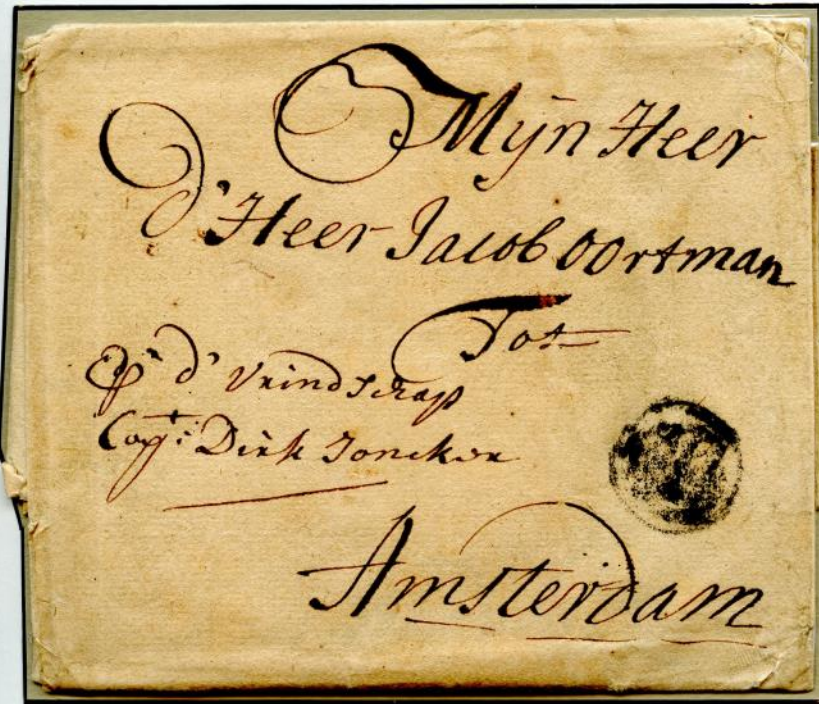 Mijn Heer
d'Heer Jacob Oortman
Tot
Pr d' Vrindschap
Capt: Dirk Joncker
Amsterdam